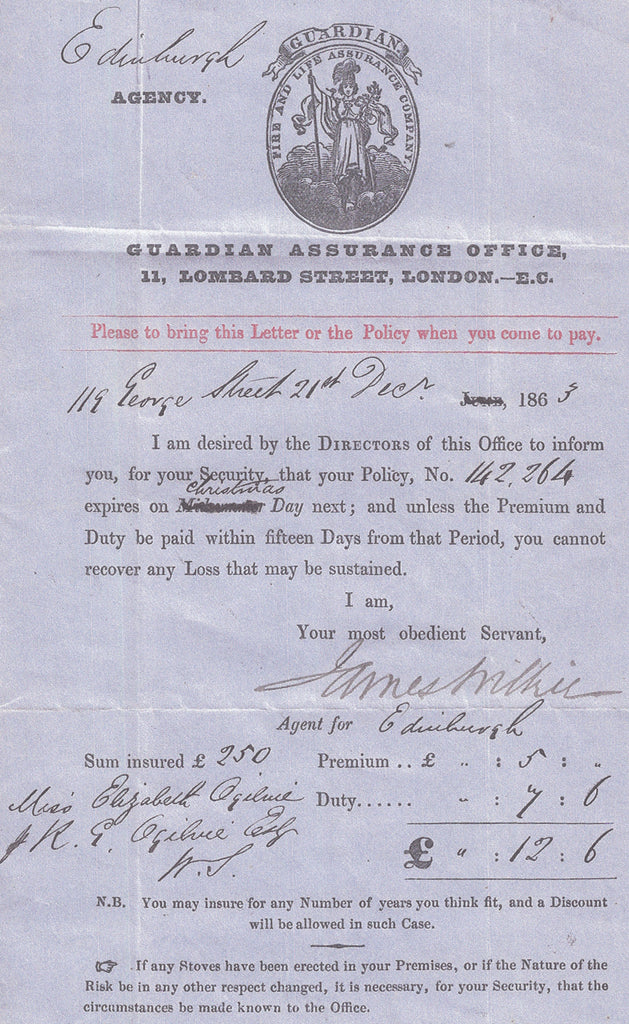 Edinburgh
AGENCY.
GUARDIAN
FIRE AND LIFE ASSURANCE COMPANY.
GUARDIAN ASSURANCE OFFICE,
11, LOMBARD STREET, LONDON.—E.C.
Please to bring this Letter or the Policy when you come to pay.
119 George Street 21st Decr. June, 1863
I am desired by the DIRECTORS of this Office to inform
you, for your Security, that your Policy, No. 142,264
Christmas
expires on Midsummer Day next; and unless the Premium and
Duty be paid within fifteen Days from that Period, you cannot
recover any Loss that may be sustained.
I am,
Your most obedient Servant,
James Wilkie
Agent for Edinburgh
Sum insured £ 250 Premium .. £ " : 5 : "
Miss Elizabeth Ogilvie Duty...... " : 7 : 6
R. G. Ogilvie Esq
W.S. £ " : 12 : 6
N.B. You may insure for any Number of years you think fit, and a Discount
will be allowed in such Case.
☞ If any Stoves have been erected in your Premises, or if the Nature of the
Risk be in any other respect changed, it is necessary, for your Security, that the
circumstances be made known to the Office.